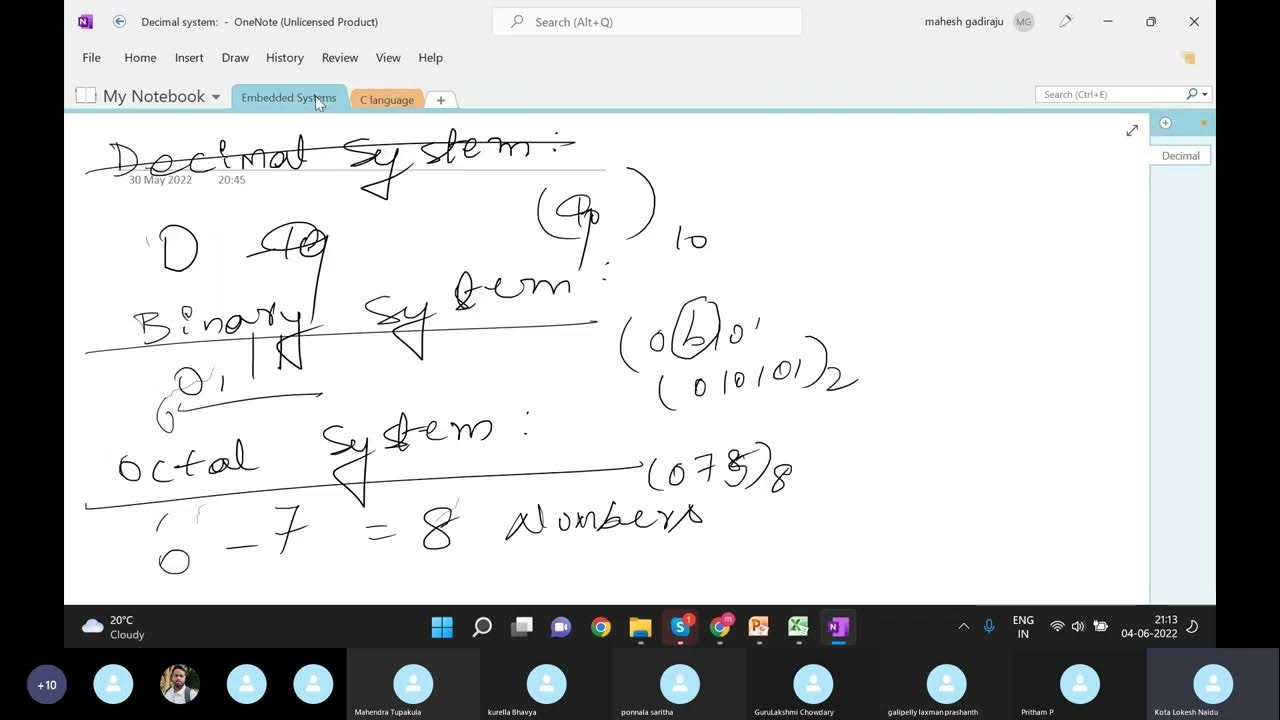 Decimal system: - OneNote (Unlicensed Product)
Search (Alt+Q)
mahesh gadiraju MG
File Home Insert Draw History Review View Help
My Notebook Embedded Systems C language +
Search (Ctrl+E)
Decimal System:
30 May 2022 20:45
Decimal
D 10
( )10
Binary System:
0,1
(0b101
(010101)2
Octal System:
(075)8
0 - 7 = 8 Numbers
20°C
Cloudy
1
ENG
IN
21:13
04-06-2022
+10
Mahendra Tupakula
kurella Bhavya
ponnala saritha
GuruLakshmi Chowdary
galipelly laxman prashanth
Pritham P
Kota Lokesh Naidu